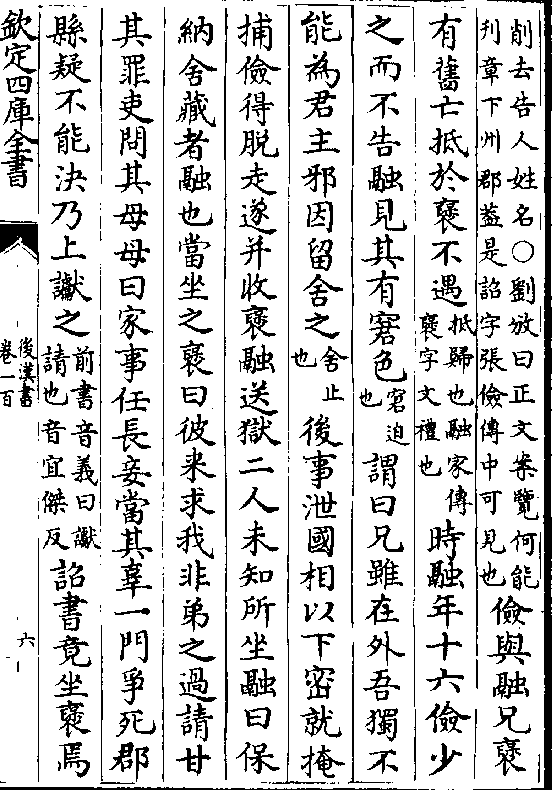 削去告人姓名○劉攽曰正文案覽何能
刋章下州郡葢是詔字張儉傳中可見也
儉與融兄褒
有舊亡抵於褒不遇
抵歸也融家傳
褒字文禮也
時融年十六儉少
之而不告融見其有窘色
窘迫
也
謂曰兄雖在外吾獨不
能為君主邪因留舍之
舍止
也
後事泄國相以下密就掩
捕儉得脫走遂并收褒融送獄二人未知所坐融曰保
納舍藏者融也當坐之褒曰彼来求我非弟之過請甘
其罪吏問其母母曰家事任長妾當其辜一門爭死郡
縣疑不能決乃上讞之
前書音義曰讞
請也音宜傑反
詔書竟坐褒焉
欽定四庫全書
後漢書
卷一百
六